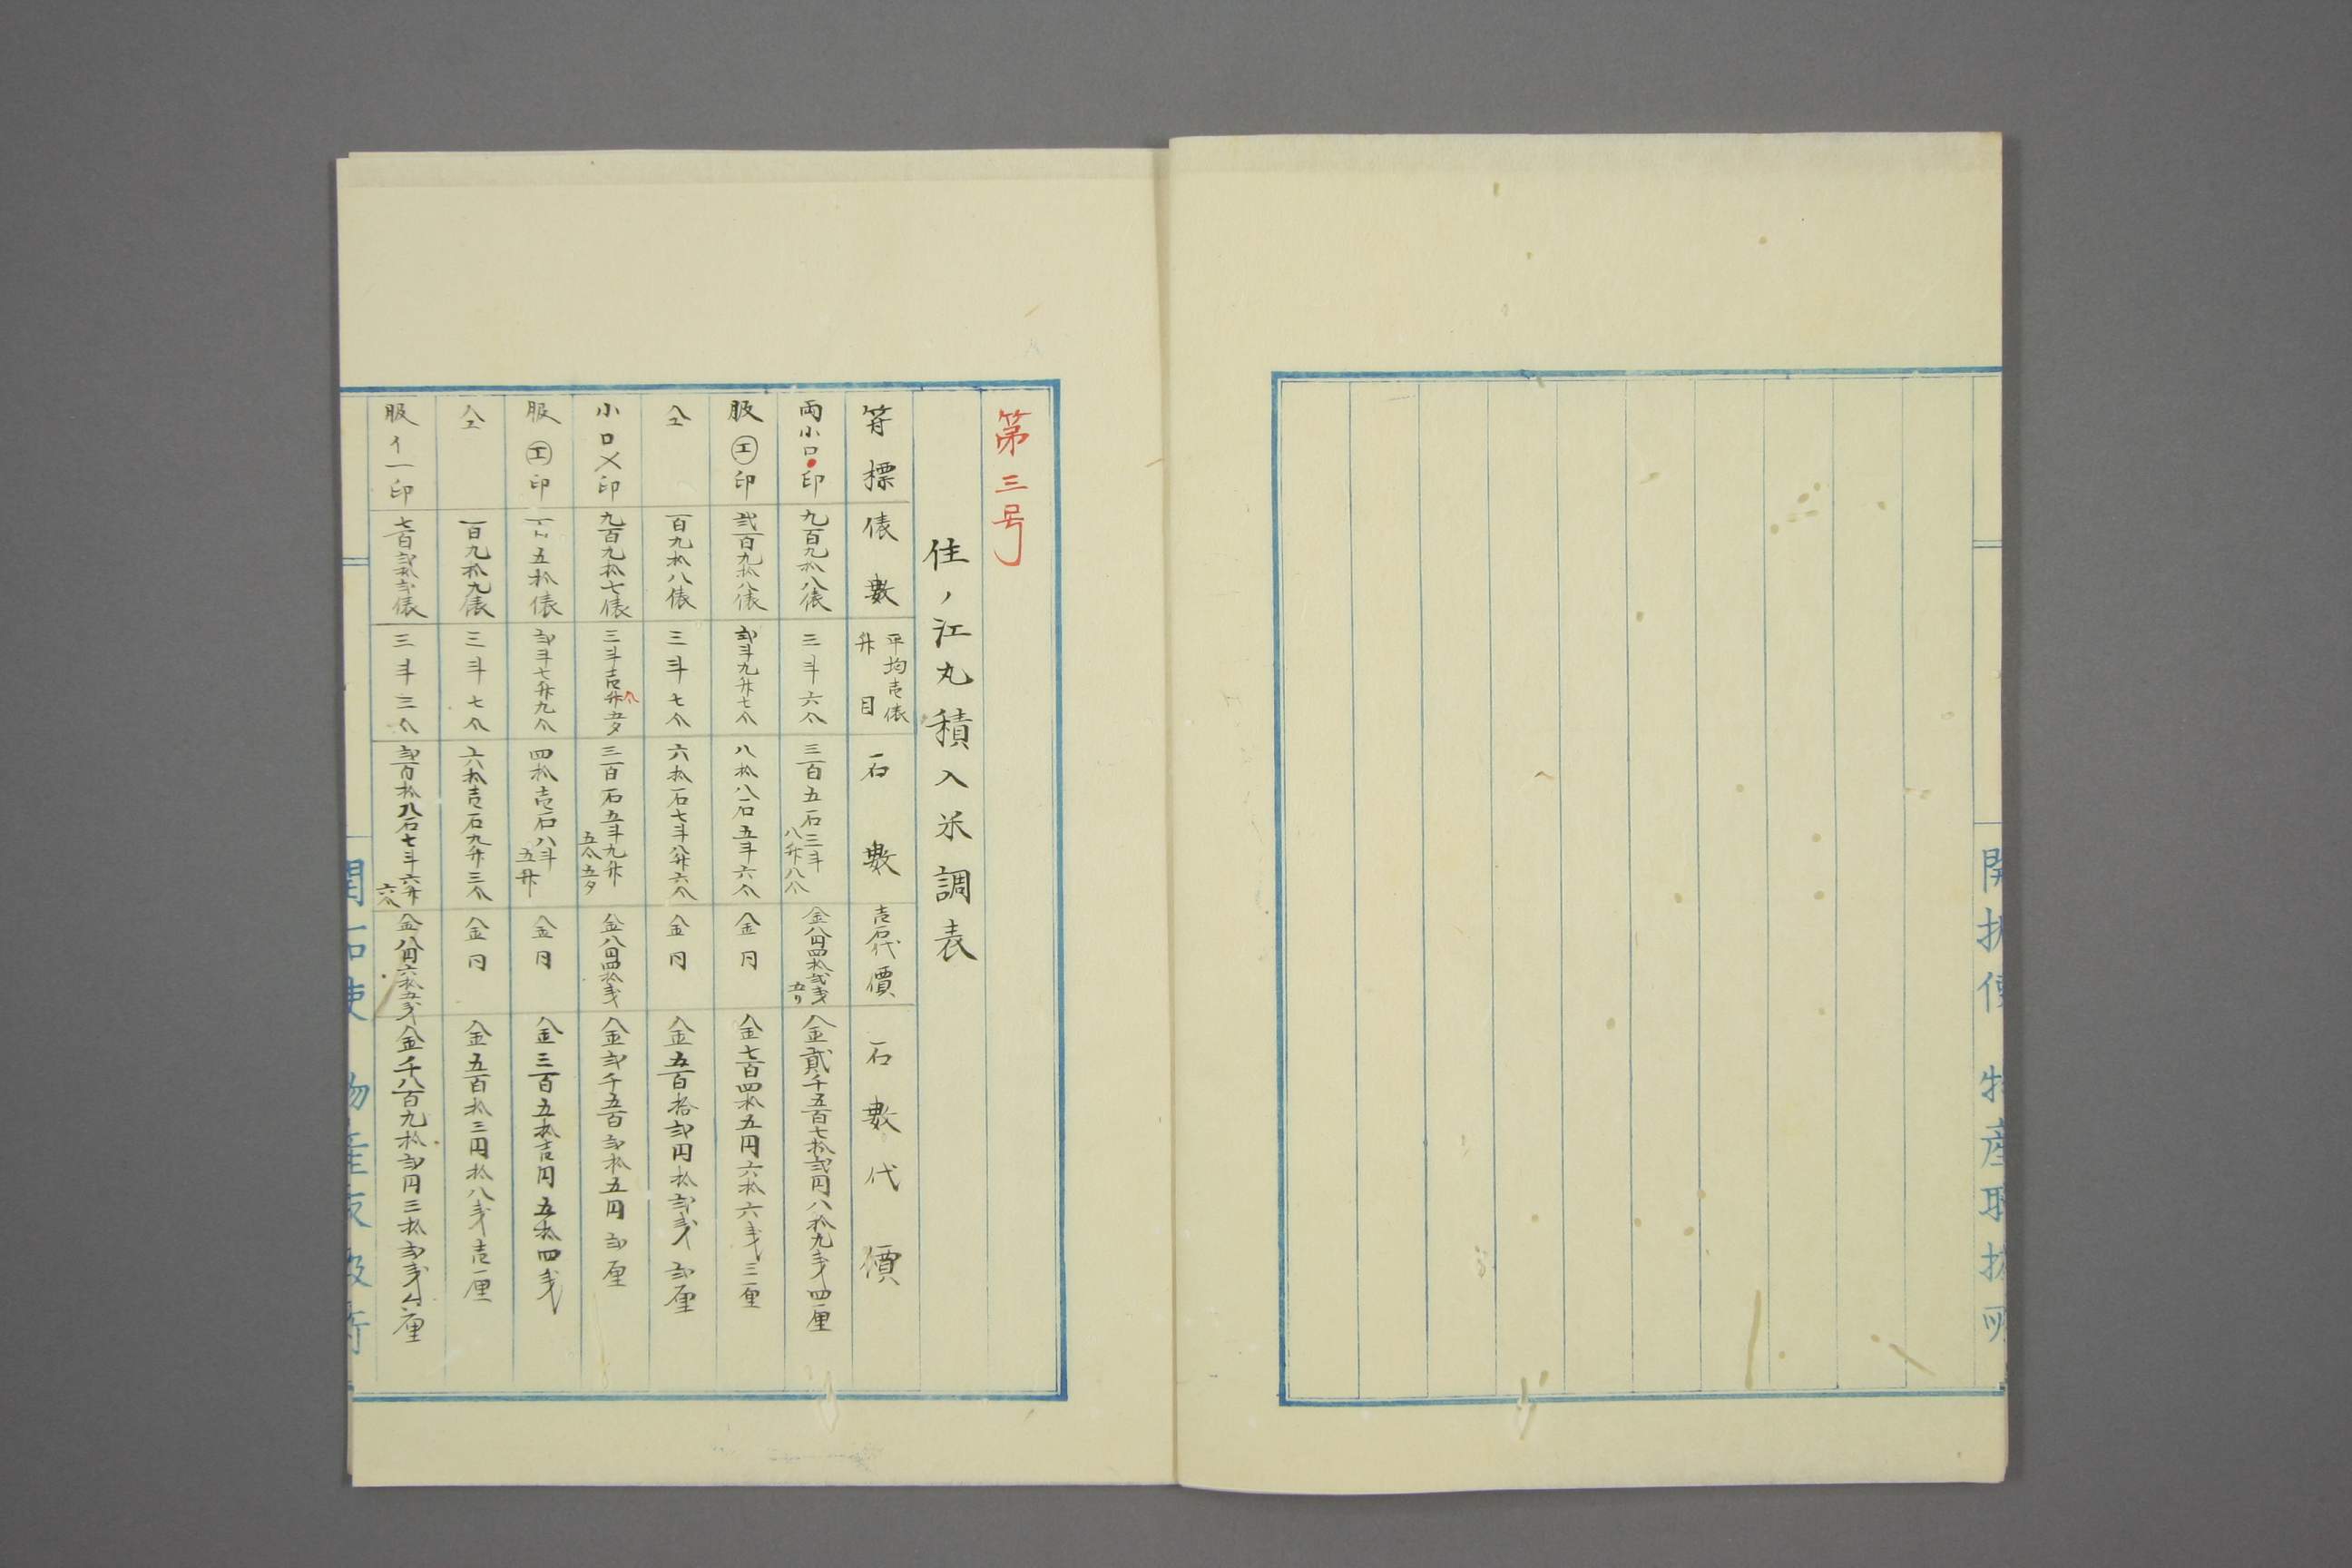 開拓使 物産取扱所
第三号
住ノ江丸積入米調表
符標 俵數 平均壱俵升目 石數 壱石代價 石數代價
両小口●印 九百九拾八俵 三斗六合 三百五石三斗八升八合 金八円四拾弐銭五り 金貳千五百七拾弐円八拾九銭四厘
服㋓印 弐百九拾八俵 弐斗九升七合 八拾八石五斗六合 金 円 金七百四拾五円六拾六銭三厘
仝 百九拾八俵 三斗七合 六拾石七斗八升六合 金 円 金五百拾弐円拾弐銭弐厘
小口〤印 九百九拾七俵 三斗壱升合五夕 三百石五斗九升五合五夕 金八円四拾銭 金弐千五百弐拾五円弐厘
服㋓印 百五拾俵 弐斗七升九合 四拾壱石八斗五升 金 円 金三百五拾壱円五拾四銭
仝 百九拾九俵 三斗七合 六拾壱石九升三合 金 円 金五百拾三円拾八銭壱厘
服イ一印 七百弐拾弐俵 三斗三合 弐百拾八石七斗六升六合 金八円六拾五銭 金千八百九拾弐円三拾弐銭六厘
開拓使 物産取扱所